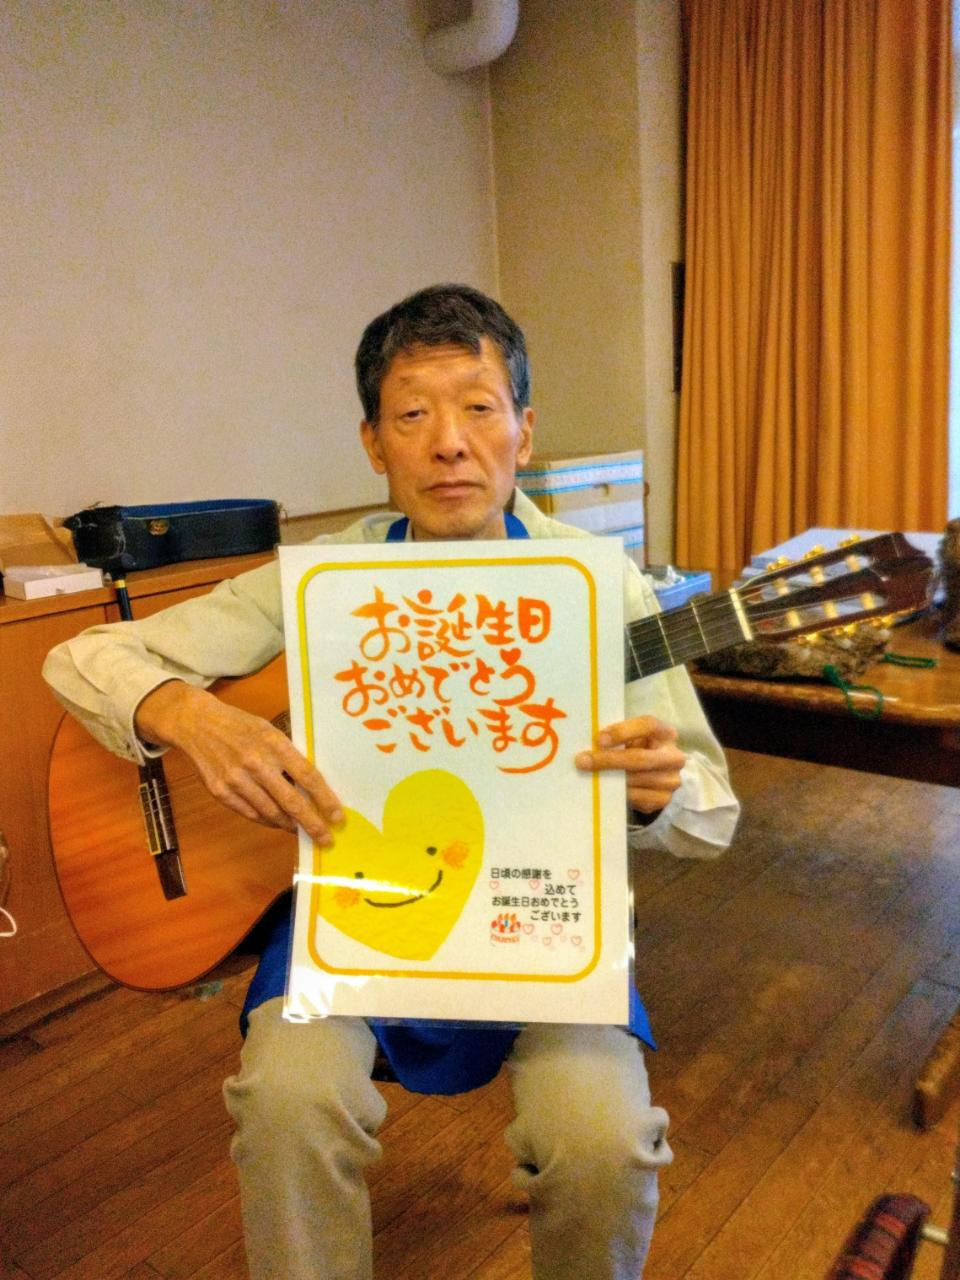 お誕生日
おめでとう
ございます
日頃の感謝を
込めて
お誕生日おめでとう
ございます